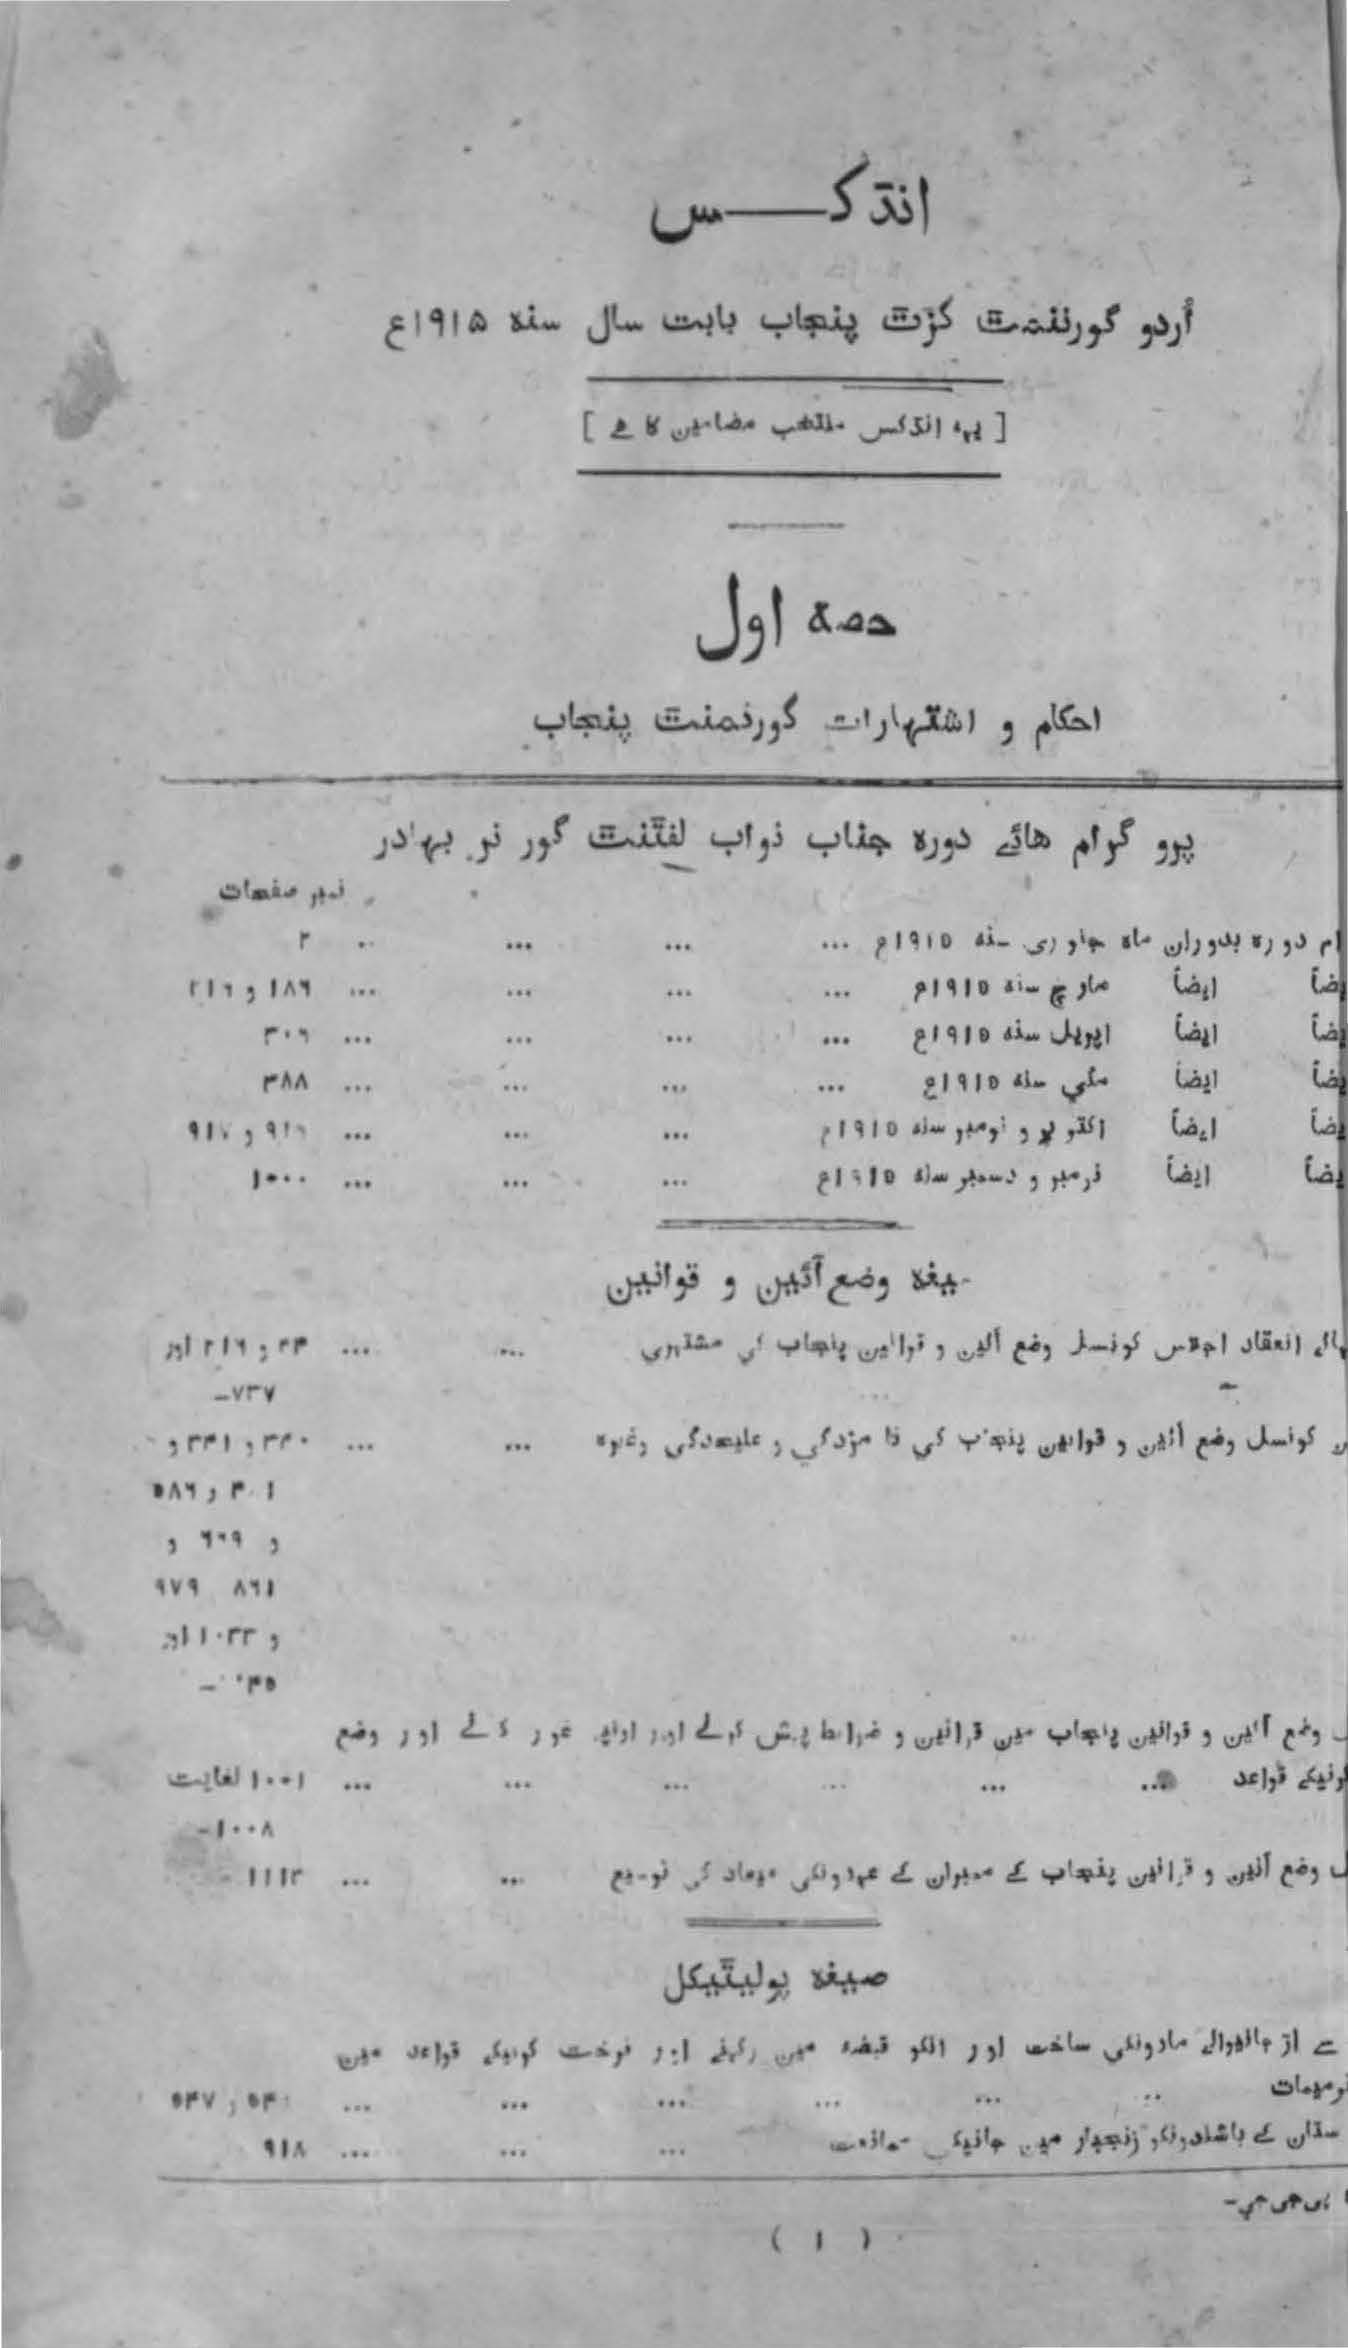 انڈکس
اُردو گورنمنٹ گزٹ پنجاب بابت سال سنہ ۱۹۱۵ع
[ یہہ انڈکس منتخب مضامین کا ہے ]
حصہ اول
احکام و اشتہارات گورنمنٹ پنجاب
پرو گرام ہائے دورہ جناب نواب لفٹنٹ گور نر بہادر
نمبر صفحات
ام دورہ بدوران ماہ جنوری سنہ ۱۹۱۵ع ... ... ... .. ۲
یضاً ایضاً مارچ سنہ ۱۹۱۵ع ... ... ... ... ۱۸۶ و ۲۱۶
یضاً ایضاً اپریل سنہ ۱۹۱۵ع ... ... ... ... ۳۰۶
یضاً ایضاً مئي سنہ ۱۹۱۵ع ... ... ... ... ۳۸۸
یضاً ایضاً اکتوبر و نومبر سنہ ۱۹۱۵ع ... ... ... ۹۱۶ و ۹۱۷
یضاً ایضاً نومبر و دسمبر سنہ ۱۹۱۵ع ... ... ... ۱۰۰۰
یغہ وضع آئین و قوانین
ہائے انعقاد اجلاس کونسل وضع آئین و قوانین پنجاب کي مشتہري ... ... و ۲۱۶ اور
۷۳۷-
ن کونسل وضع آئین و قوانین پنجاب کي نا مزدگي و علیحدگي وغیرہ ... ... و ۳۴۱ و
و ۵۸۶
و ۶۰۹ و
۸۶۱ ۹۷۹
و ۱۰۳۳ اور
ل وضع آئین و قوانین پنجاب مین قوانین و ضوابط پیش کرنے اور اونپر غور کرنے اور وضع
کرنیکے قواعد ... ... ... ... ... ... ۱۰۰۱ لغایت
۱۰۰۸-
ل وضع آئین و قوانین پنجاب کے ممبران کے عہدونکي میعاد کي توسیع ... ... ۱۱۱۲-
صیغہ پولیٹیکل
سے اڑ جانیوالے مادونکي ساخت اور انکو قبضہ مین رکہنے اور فروخت کرنیکے قواعد مین
ترمیمات .. ... ... ... ... ... و ۵۴۷
ستان کے باشندونکو زنجبار مین جانیکي ممانعت ... ... ... ۹۱۸
پي جي جي-
( ۱ )